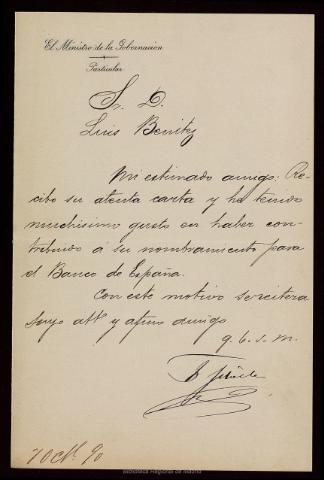 El Ministro de la Gobernación
Particular
Sr. D.
Luis Benitez
Mi estimado amigo: Re-
cibo su atenta carta y he tenido
muchisimo gusto en haber con-
tribuido á su nombramiento para
el Banco de España.
Con este motivo se reitera
suyo att º y afmo amigo
q. b. s. m.
7 Oct. 90
Biblioteca Regional de Madrid